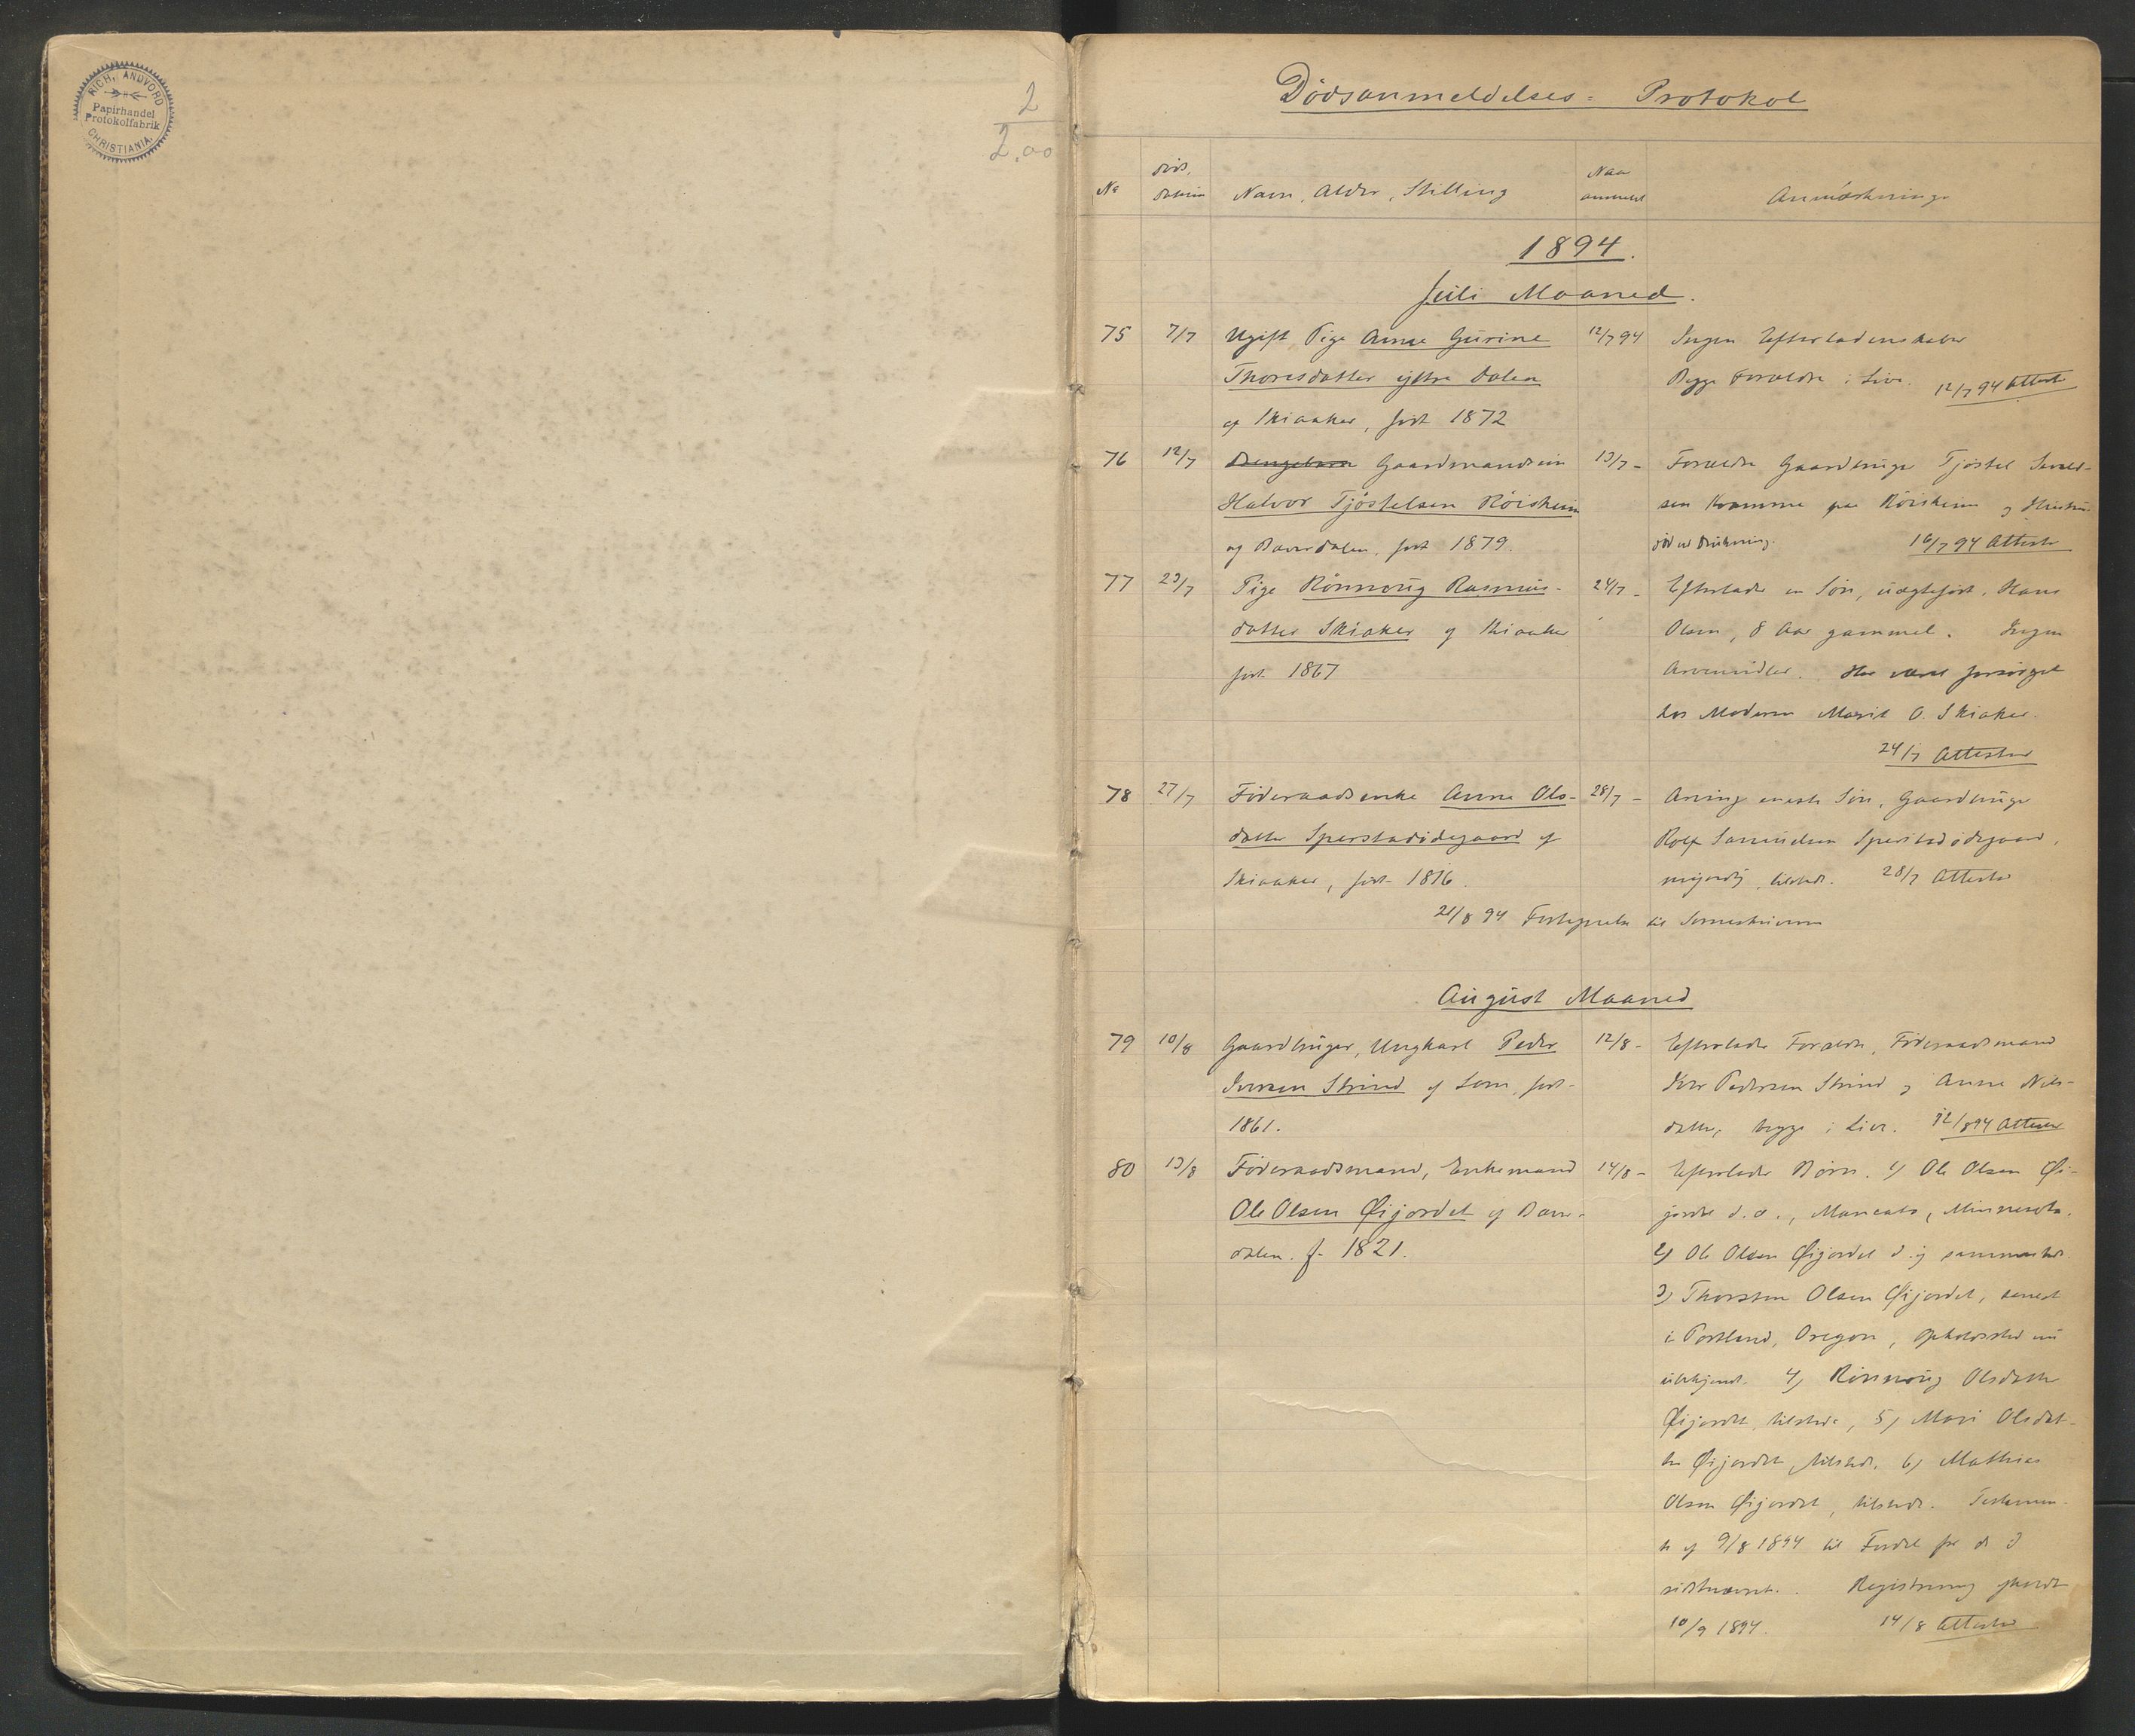 RICH. ANDVORD
Papirhandel
Protokolfabrik
CHRISTIANIA.
2
2,00
Dødsanmeldelses- Protokol
No
Døds-
datum
Navn, Alder, Stilling
Naar
anmeldt
Anmærkninger
1894.
Juli Maaned.
75 7/7 Ugift Pige Anne Gurine 12/7 94 Ingen Efterladenskaber
Thoresdatter yttre Dalen Begge Forældre i Live. 12/7 94 Attest
af Skiaaker, født 1872
76 12/7 Gaardmandssøn 13/7 - Forældre Gaardbruger Tjøstel
Halvor Tjøstelsen Röisheim sen Kvamme paa Röisheim og Hustru
af Bæverdalen, født 1879. død ved Drukning. 16/7 94 Attest
77 23/7 Pige Rönnoug Rasmus- 24/7 - Efterlader en Søn, uægtefødt, Hans
datter Skiaker af Skiaaker Olsen, 8 Aar gammel. Ingen
født 1867 Arvemidler. Har været forsørget
hos Moderen Marit O. Skiaker.
24/7 Attest
78 27/7 Föderaadsenke Anne Ols- 28/7 - Arving eneste Søn, Gaardbruger
datter Sperstadødegaard af Rolf Samuelsen Sperstadødegaard,
Skiaaker, født 1816. myndig, tilstede. 28/7 Attest
21/8 94 til Sorenskriveren
August Maaned
79 10/8 Gaardbruger, Ungkarl Peder 12/8 - Efterlader Forældre, Föderaadsmand
Iversen Strind af Lom, født Iver Pedersen Strind og Anne Nils-
1861. datter, begge i Live. 12/8 94 Attest
80 13/8 Föderaadsmand, Enkemand 14/8 - Efterlader Børn. 1) Ole Olsen Øi-
Ole Olsen Øijordet af Bæver- jordet d. æ., Mancato, Minnesota.
dalen. f. 1821. 2) Ole Olsen Øijordet d. y. sammesteds.
3) Thorsten Olsen Øijordet, senest
i Portland, Oregon, Opholdssted nu
ubekjendt. 4) Rönnoug Olsdatter
Øijordet, tilstede, 5) Mari Olsdat-
ter Øijordet, tilstede, 6) Mathias
Olsen Øijordet, tilstede. Testamen-
te af 9/8 1894 til Fordel for de 3
sidstnævnte. Registrering afholdt
10/9 1894. 14/8 Attest